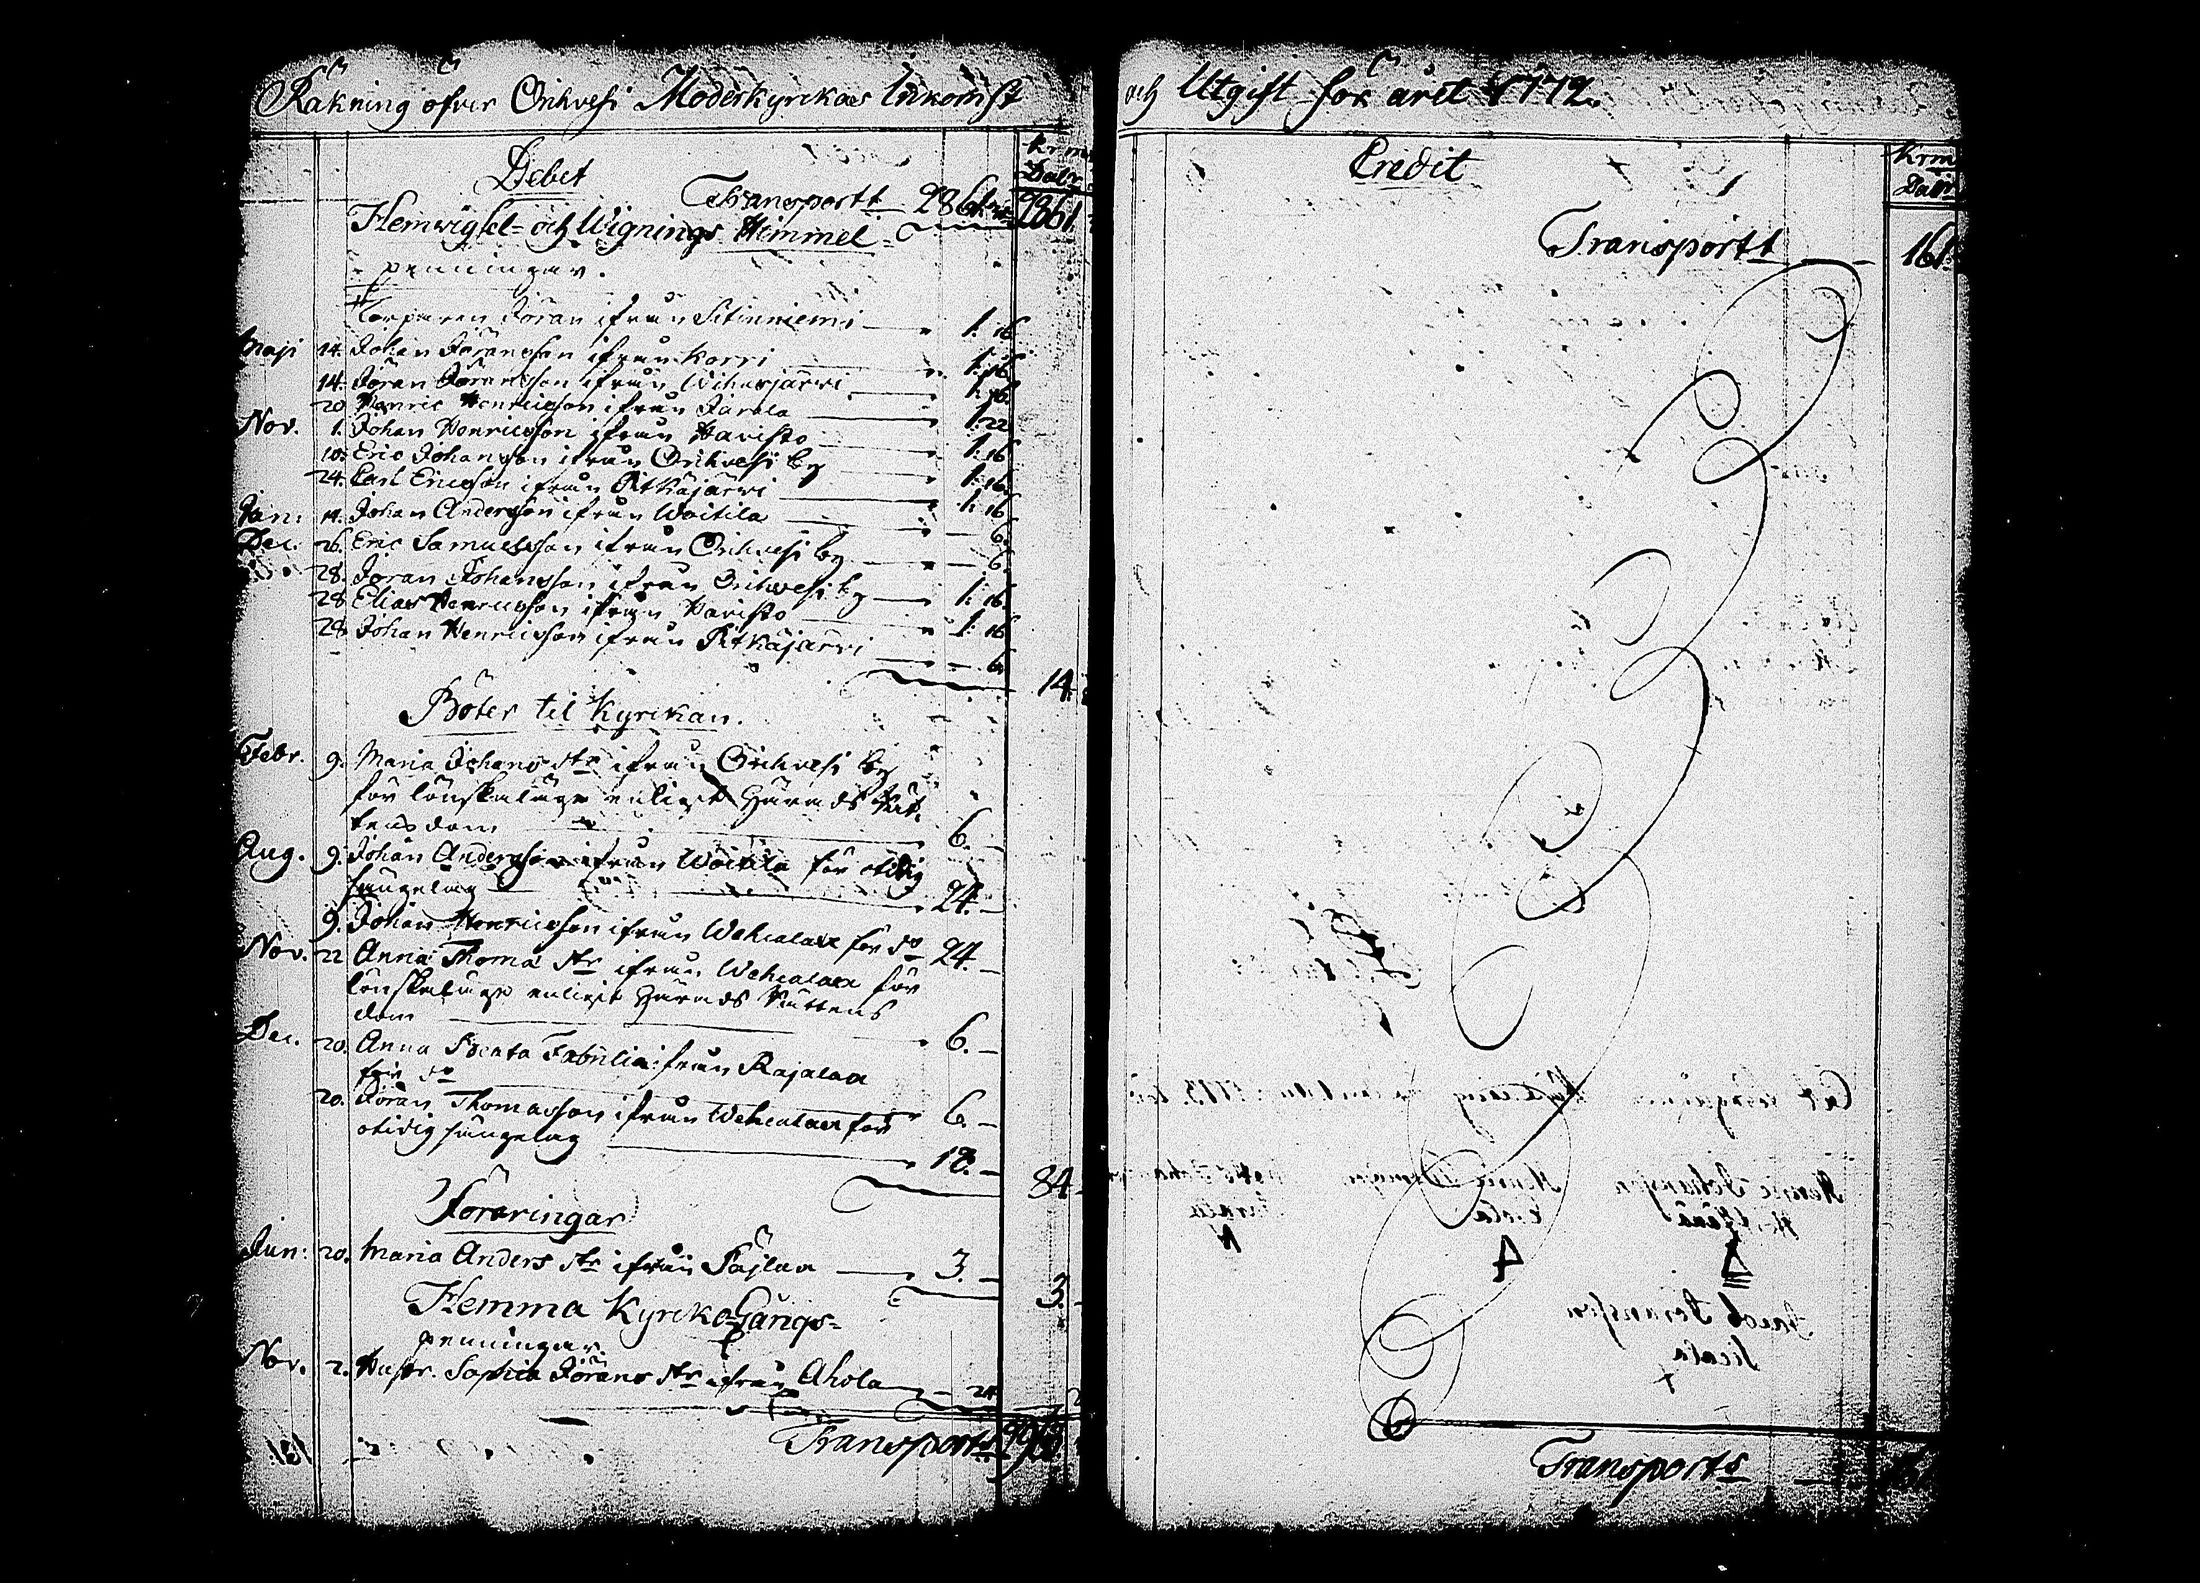 Räkning öfver Orihvesi Moderkyrkas Inkomst
Debet
Krm
Dalr
Transportt 2861 2861
Hemvigsel- och Wignings Himmel-
penningar.
Torparen Jöran ifrån Sitinniemi 1: 16
Maji 14. Johan Jöransson ifrån Korri 1: 16
14. Jöran Jöransson ifrån Wihasjärvi 1: 16
20 Henric Henricsson ifrån Järola 1: 22
Nov. 1. Johan Henricsson ifrån Havisto 1: 16
10. Eric Johansson ifrån Orihvesi by 1: 16
24. Carl Ericsson ifrån Pitkäjärvi 1: 16
Jan: 14. Johan Andersson ifrån Woitila 6.
Dec. 26. Eric Samuelsson ifrån Orihvesi by 6.
28. Jöran Johansson ifrån Orihvesi by 1: 16
28 Elias Henricsson ifrån Havisto 1: 16
28 Johan Henricsson ifrån Pitkäjärvi 6.
14.
Böter til Kyrckan.
Febr. 9. Maria Johans dtr ifrån Orihvesi by
för lönskaläge enligit Härads Rät-
tens dom 6.
Aug. 9. Johan Andersson ifrån Woitila för otidig
sängelag 24. –
9. Johan Henricsson ifrån Wehcalax för do 24. –
Nov. 22 Anna Thomæ dtr ifrån Wehcalax för
lönskaläge enligit Härads Rättens
dom 6. –
Dec. 20. Anna Beata Fabrilia ifrån Rajalax
för do 6. –
20. Jöran Thomasson ifrån Wehcalax för
otidig sängelag 18. –
84
Föräringar
Jun: 20. Maria Anders dtr ifrån Päjlax 3. –
3. –
Hemma Kyrcko-Gångs-
penningar.
Nov. 2. Hustr. Sophia Jörans dtr ifrån Ahola 24
Transports
och Utgift för året 1772.
Credit
Krm
Dalr
Transportt 161
Transports